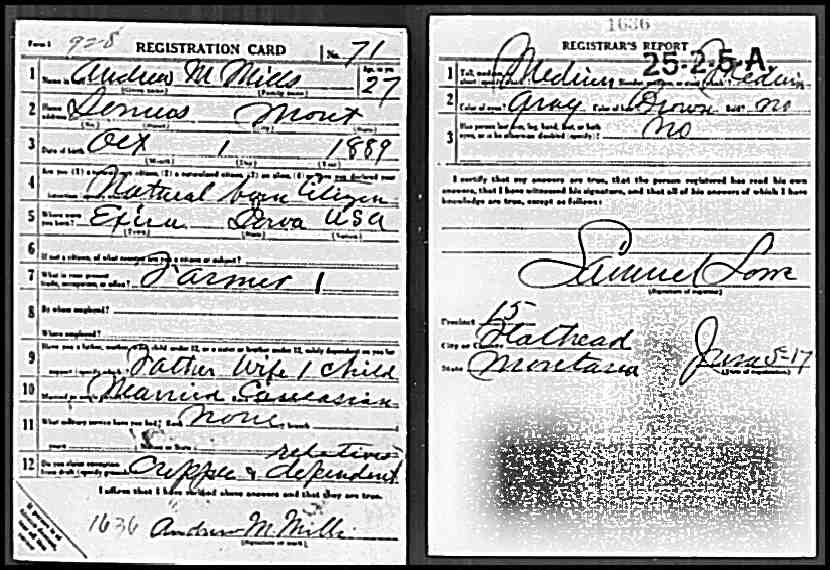 Form 1 928 REGISTRATION CARD No. 71
1 Name in full Andrew M Mills Age, in yrs. 27
(Given name) (Family name)
2 Home address Mont
(No.) (Street) (City) (State)
3 Date of birth Oct 1 1889
(Month) (Day) (Year)
4 Are you (1) a natural-born citizen, (2) a naturalized citizen, (3) an alien, (4) or have you declared your
intention Natural born Citizen
5 Where were you born? Exira Iowa USA
(Town) (State) (Nation)
6 If not a citizen, of what country are you a citizen or subject?
7 What is your present trade, occupation, or office? Farmer 1
8 By whom employed?
Where employed?
9 Have you a father, mother, wife, child under 12, or a sister or brother under 12, solely dependent on you for
support (specify which)? Father Wife 1 child
10 Married or single Married Caucasian
11 What military service have you had? Rank None branch
years Nation or State
relatives
12 Do you claim exemption from draft (specify grounds)? & dependent
I affirm that I have verified above answers and that they are true.
1636 Andrew M Mills
(Signature or mark)
1636
REGISTRAR'S REPORT
25-2-5-A.
1 Tall, medium, or short (specify which)? Medium Slender, medium, or stout (which)? Medium
2 Color of eyes? Gray Color of hair? Brown Bald? no
3 Has person lost arm, leg, hand, foot, or both
eyes, or is he otherwise disabled (specify)? no
I certify that my answers are true, that the person registered has read his own
answers, that I have witnessed his signature, and that all of his answers of which I have
knowledge are true, except as follows:
Samuel
(Signature of registrar)
Precinct 15
City or County Flathead
State Montana June 5-17
(Date of registration)